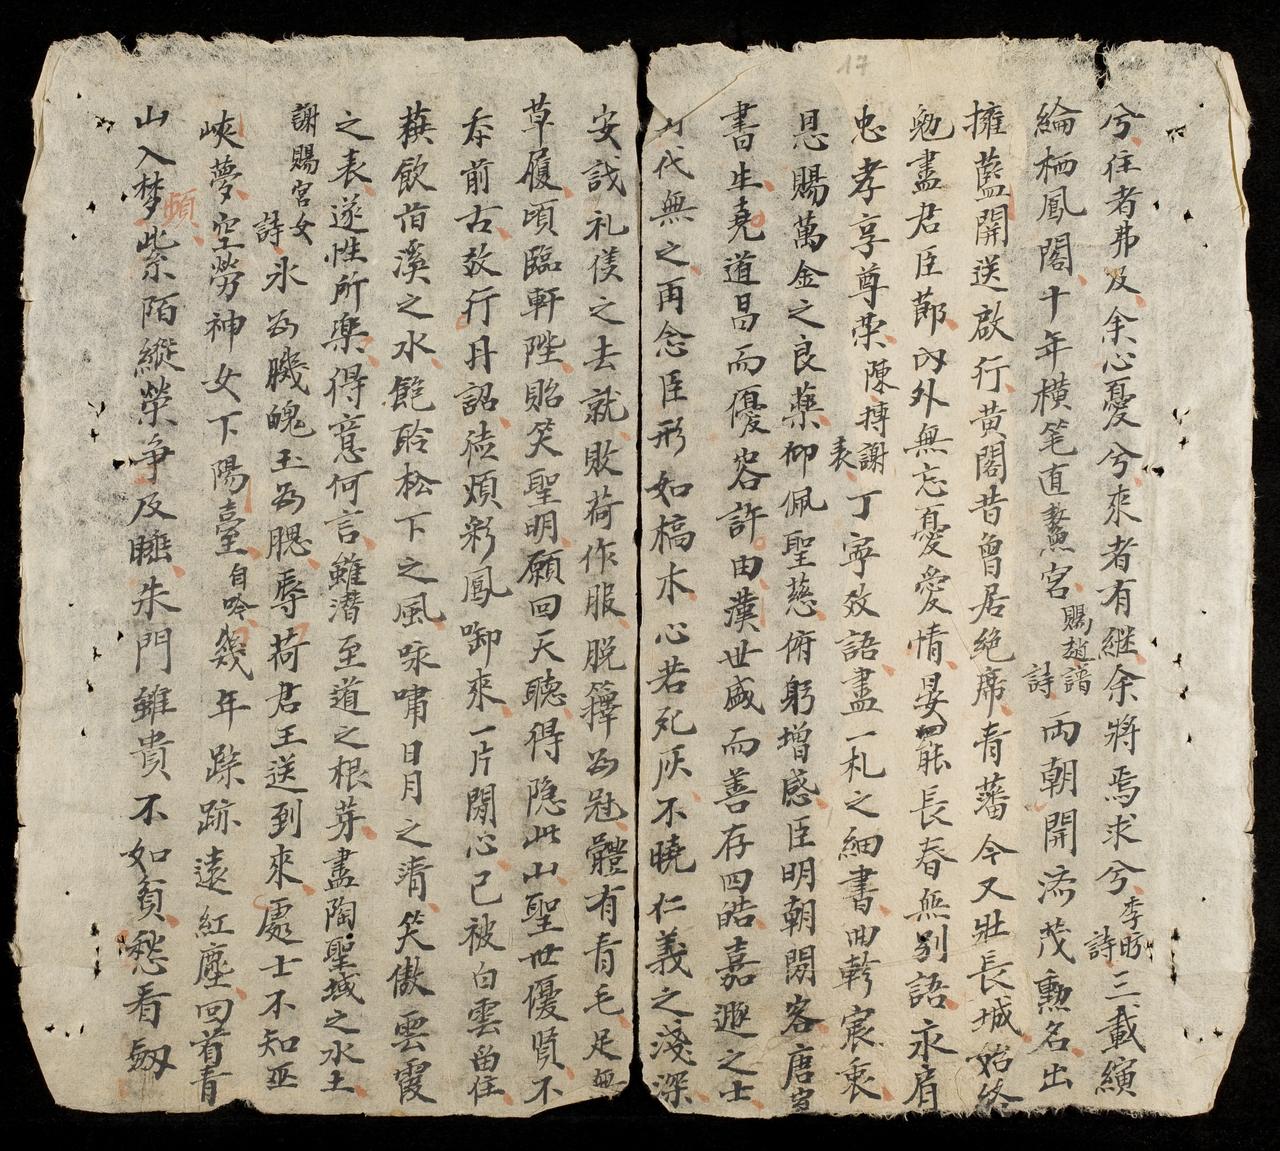 兮往者弗及余心憂兮來者有継余將焉求兮李昉詩三載演
綸栖鳳閣十年橫笔直鰲宮賜趙譜詩兩朝開済茂勳名出
擁藍開送啟行黃閣昔曾居絶席青藩今又壯長城始終
勉盡君臣莭内外無忘憂愛情晏罷長春無別語永肩
忠孝享尊荣陳摶謝表丁寧致語盡一札之細書曲軫宸衷
恩賜萬金之良藥仰佩聖慈俯躬增感臣明朝閑客唐室
書生堯道昌而優容許由漢世盛而善存四皓嘉遯之士
何代無之再念臣形如槁木心若死灰不曉仁義之淺深
安識礼儀之去就敗荷作服脱籜為冠體有青毛足無
草履頃臨軒陛貽笑聖明願回天聽得隐此山聖世優贤不
夲前古数行丹詔徒煩彩鳳啣來一片閑心已被白雲畄住
蔌飲旨溪之水飽聆松下之風咏嘯日月之清笑傲雲霞
之表遂性所樂得意何言雖潜至道之根芽盡陶聖域之水土
謝賜宮女詩氷為膚魄玉為腮辱荷君王送到來處士不知巫
峽夢空勞神女下陽臺自吟幾年踪跡遠紅塵回首青
山入梦頻紫陌縱荣爭及睡朱門雖貴不如貧愁看劔